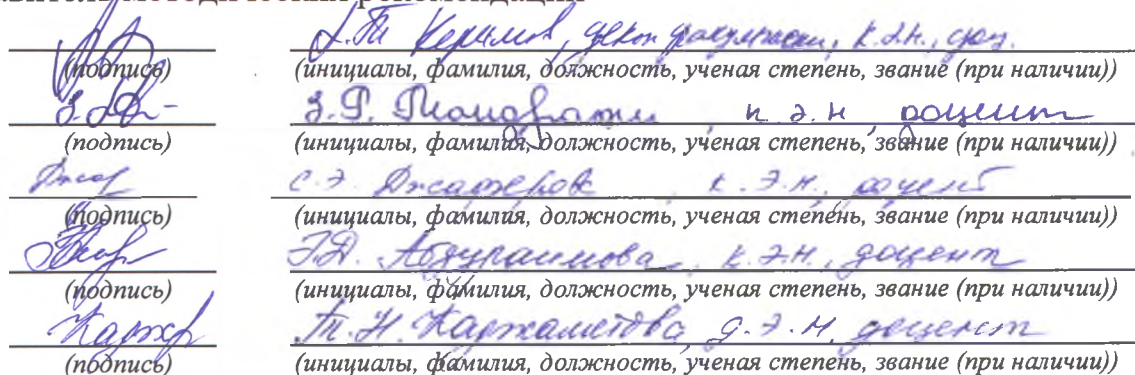 методических рекомендаций
Керимов, декан факультета, к.э.н., доц.
(подпись) (инициалы, фамилия, должность, ученая степень, звание (при наличии))
З.Р. к.э.н, доцент
(подпись) (инициалы, фамилия, должность, ученая степень, звание (при наличии))
С.Э. Джаферова к.э.н., доцент
(подпись) (инициалы, фамилия, должность, ученая степень, звание (при наличии))
Абдураимова к.э.н., доцент
(подпись) (инициалы, фамилия, должность, ученая степень, звание (при наличии))
Т.Н. Каджаметова, д.э.н, доцент
(подпись) (инициалы, фамилия, должность, ученая степень, звание (при наличии))